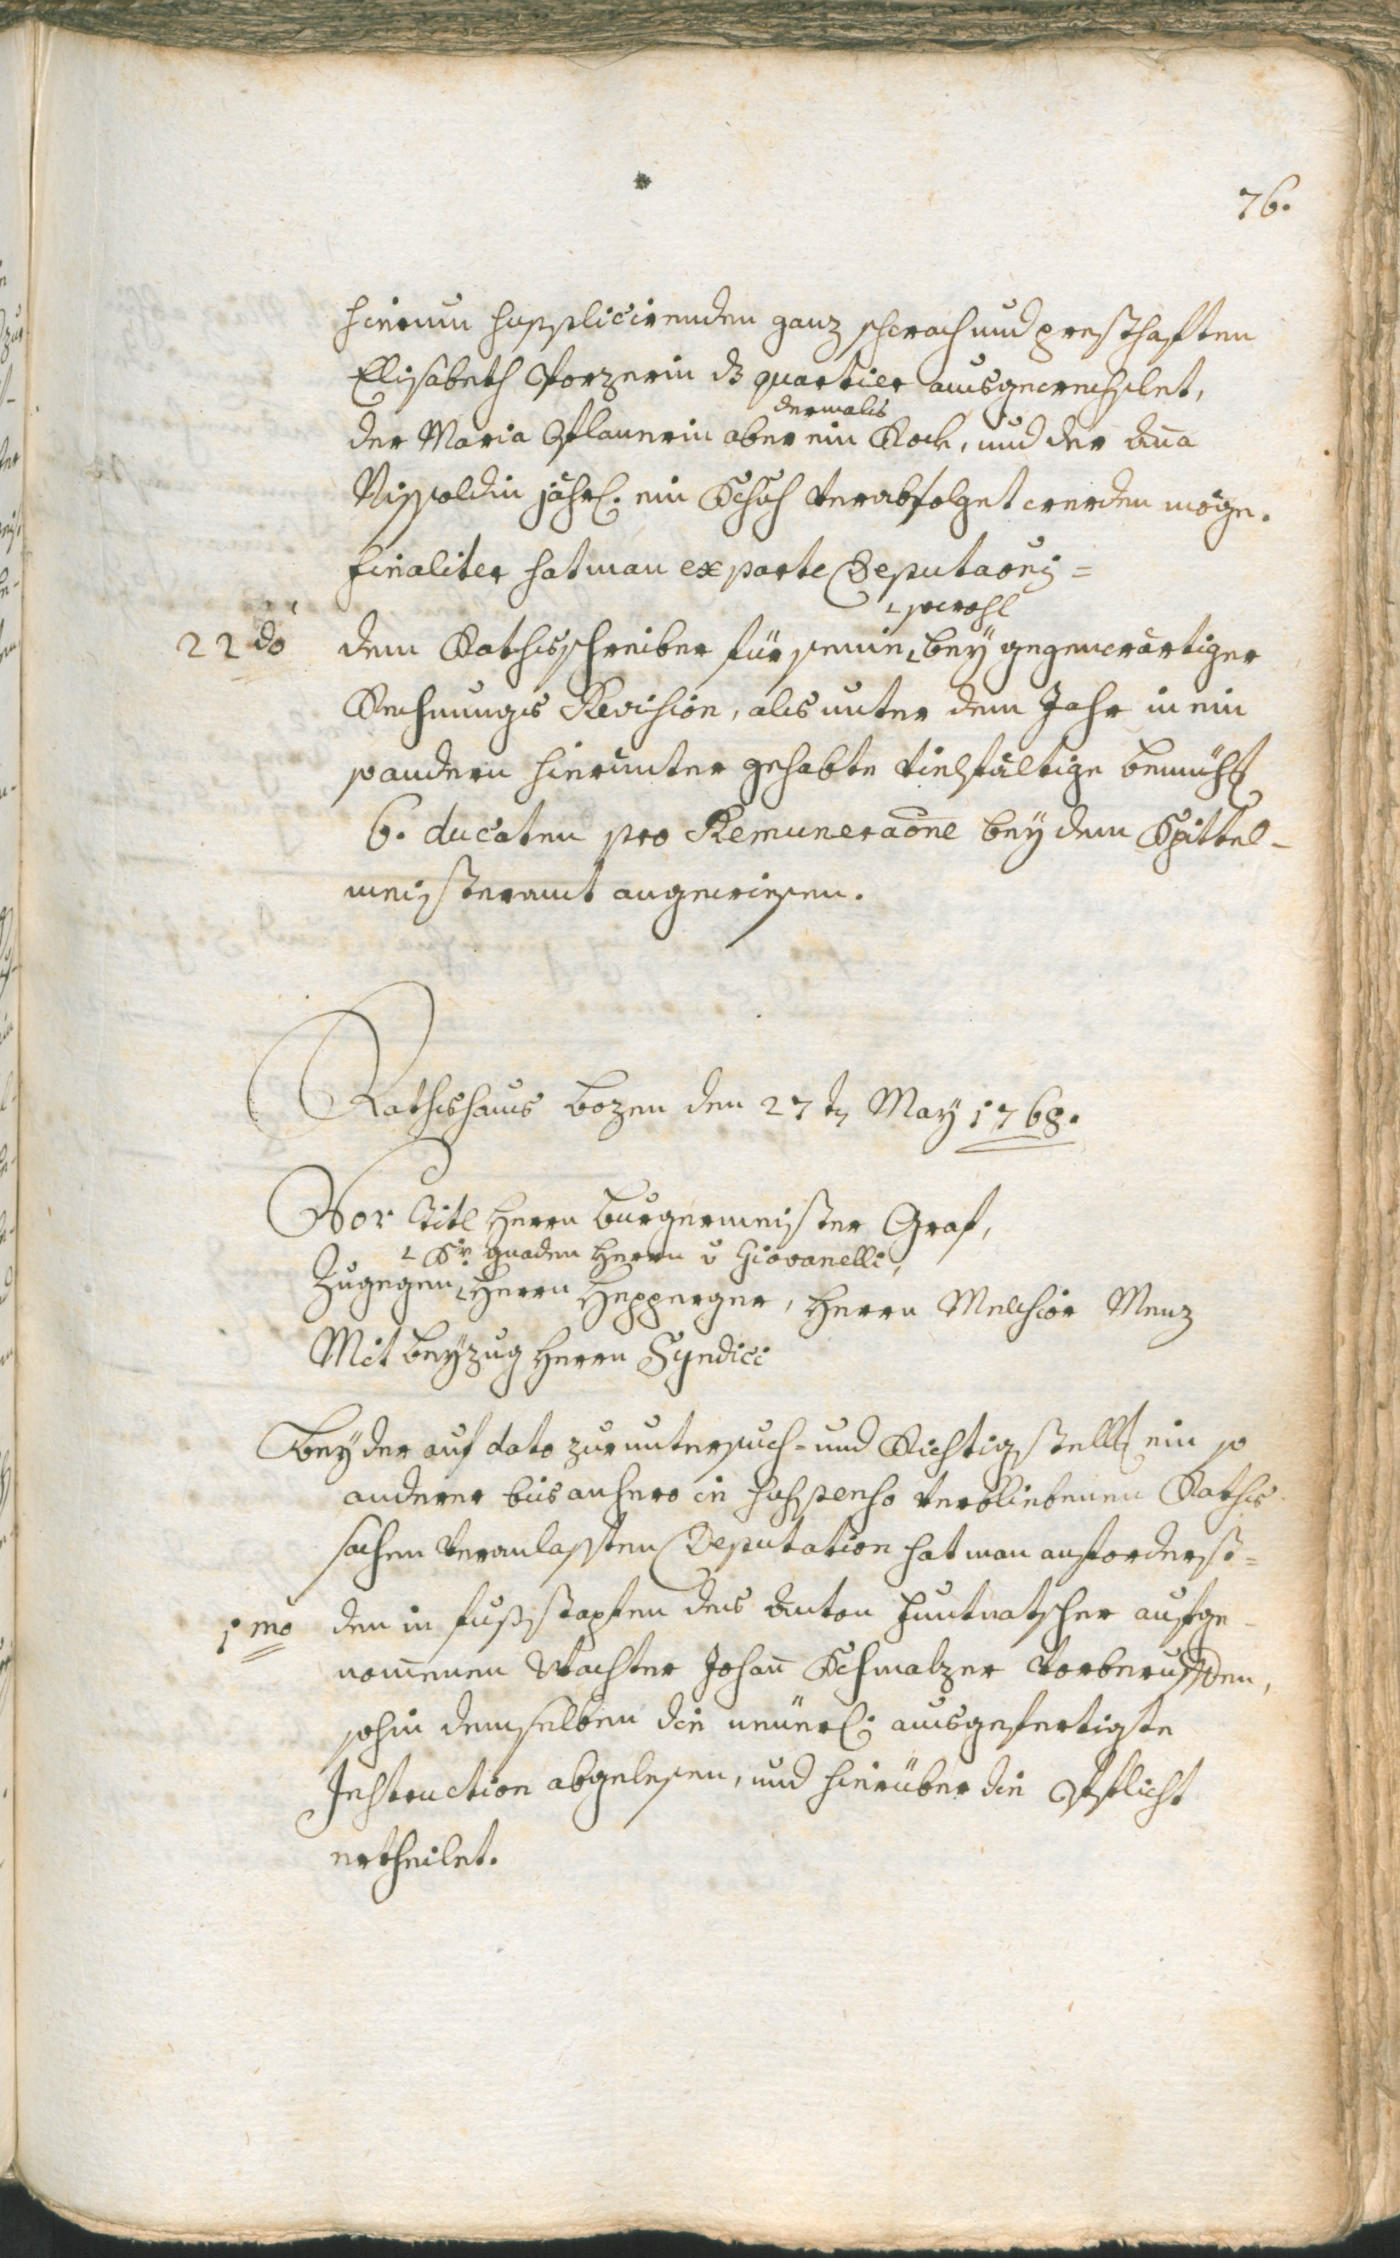 76.
hierum supplicirenden ganz schwach und presthaften
Elisabeth Porzerin dz quartier ausgewechslet,
dermals
der Maria Pflanerin aber ein Rock, und der Aña
Nissoldin jährl. ein Schuh verabfolget werden möge.
finaliter hat man ex parte Deputaõnis =
sowohl
22 do dem Rathsschreiber für seine bey gegenwärtiger
Rechnungs Revision, als unter dem Jahr in ein
so andern hierunter gehabte vielfältige bemüh
6. ducaten pro Remuneraõne bey dem Spittel-
meisteramt angewiesen.
Rathshaus Bozen den 27 t May 1768.
Vor Titl Herrn Burgermeister Graf,
Sr. gnaden Herrn v Giovanelli,
Zugegen Herrn Hepperger, Herrn Melchior Menz
Mit beyzug Herrn Syndici
Bey der auf dato zur untersuch- und Richtigstell ein so
anderer bis anhero in suspenso verbliebenen Raths
sachen veranlassten Deputation hat man anforderst=
1 mo den in fußstapfen des Anton huntratscher aufge-
nom̅enen Wachter Johan̅ Schmalzer vorberuffen,
sohin demselben die neuerl: ausgefertigte
Instruction abgelesen, und hierüber die Pflicht
ertheilet.